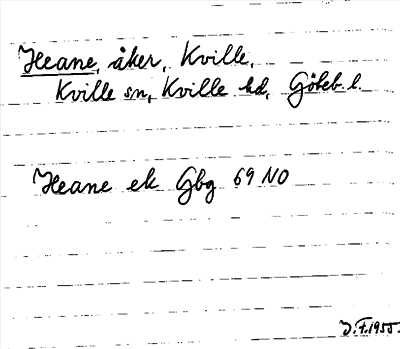 Heane, åker, Kville,
Kville sn, Kville hd, Göteb. l.
Heane ek Gbg 69 NO
J.F. 1955.